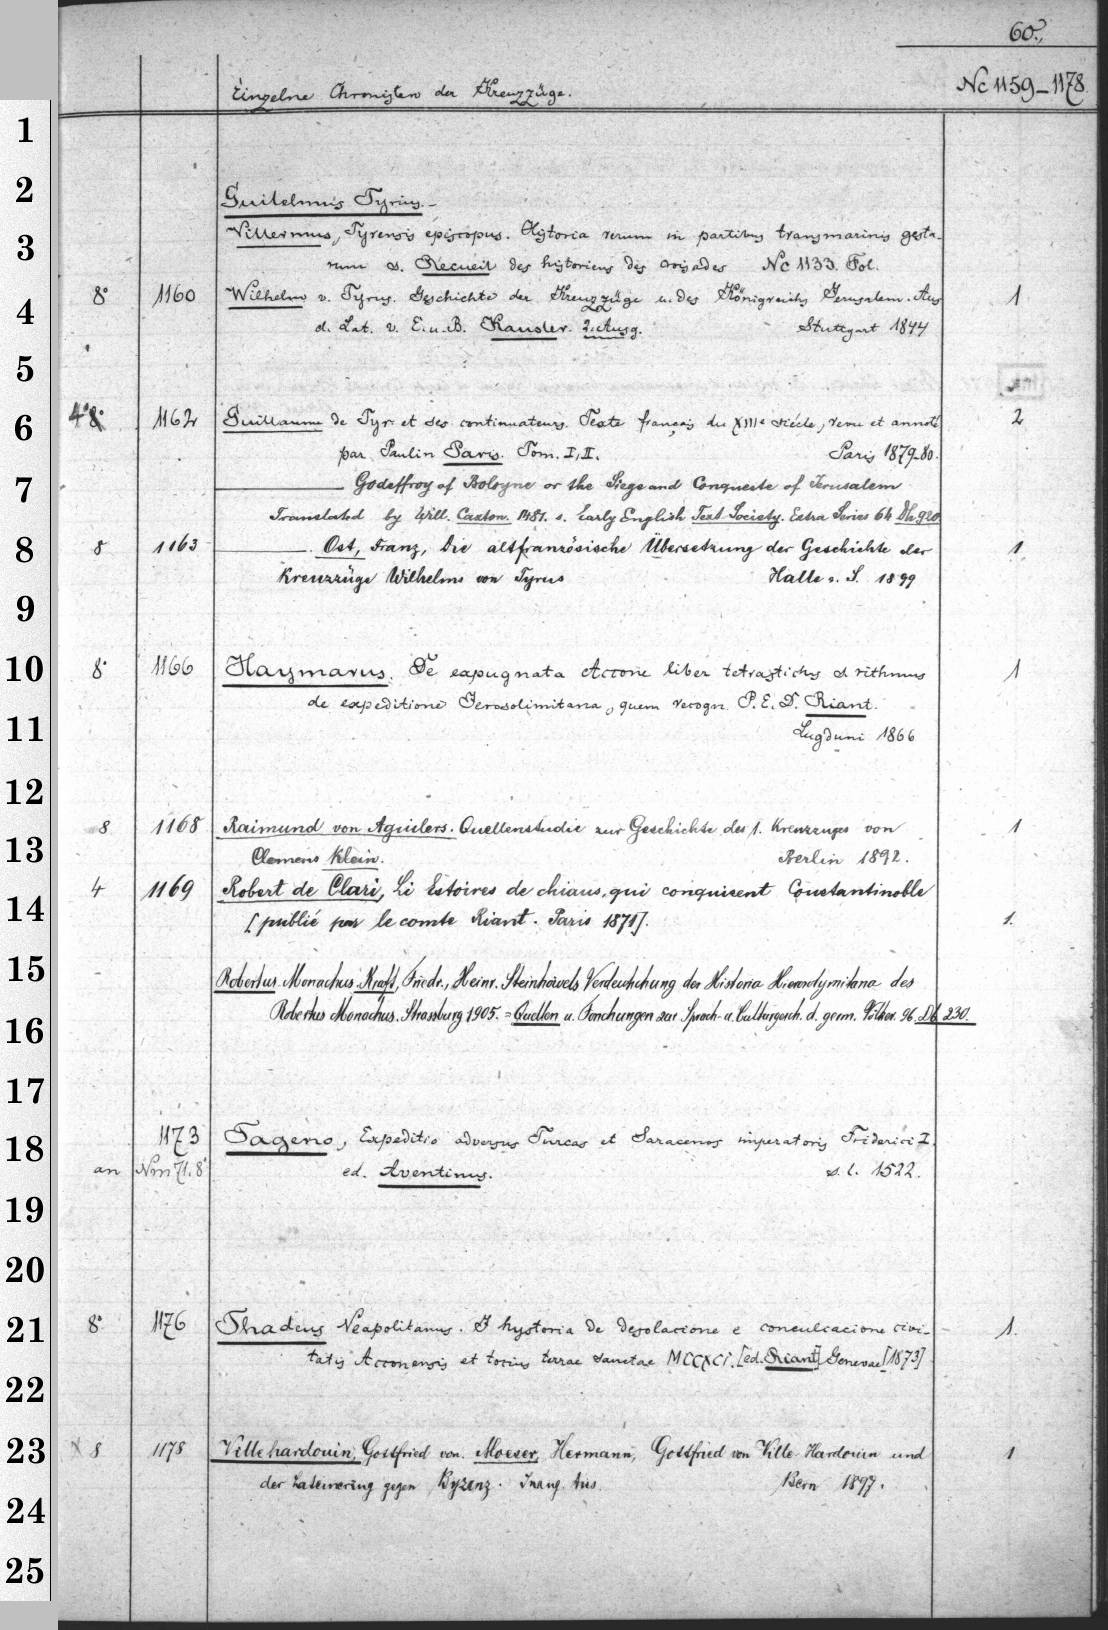 60.
Einzelne Chronisten der Kreuzzüge. Nc 1159-1178.
1
2
3
4
5
6
7
8
9
10
11
12
13
14
15
16
17
18
19
20
21
22
23
24
25
Guilelmus Tyrius.
Villermus, Tyrensis episcopus. Historia rerum in partibus transmarinis gesta-
rum s. Recueil des historiens des croisades Nc 1133. Fol.
8° 1160 Wilhelm v. Tyrus. Geschichte der Kreuzzüge u. des Königreichs Jerusalem. Aus 1
d. Lat. v. E. u. B. Kausler. 2. Ausg. Stuttgart 1844
4° 8° 1162 Guillaume de Tyr et ses continuateurs. Texte français du XIIIe siécle, revu et annoté 2
par Paulin Paris. Tom. I, II. Paris 1879-80.
Godeffroy of Bologne or the Siege and Conqueste of Jerusalem
Translated by Will. Caxton. 1481. s. Early English Text Society. Extra Series 64 Dk 920
8 1163 Ost, Franz, Die altfranzösische Übersetzung der Geschichte der 1
Kreuzzüge Wilhelms von Tyrus Halle a. S. 1899
8° 1166 Haymarus. De expugnata Accone liber tetrastichus et rithmus 1
de expeditione Ierosolimitana, quem recogn. P. E. D. Riant.
Lugduni 1866
8 1168 Raimund von Aguilers. Quellenstudie zur Geschichte des 1. Kreuzzuges von 1
Clemens Klein. Berlin 1892.
4 1169 Robert de Clari, Li Estoires de chiaus, qui conquisent Constantinoble
[publié par le comte Riant. Paris 1871]. 1.
Robertus Monachus. Kraft, Friedr., Heinr. Steinhöwels Verdeutschung der Historia Hierosolymitana des
Robertus Monachus. Strassburg 1905. = Quellen u. Forschungen zur Sprach- u. Culturgesch. d. germ. Völker. 96. Db 230.
1173 Tageno, Expeditio adversus Turcas et Saracenos imperatoris Friderici I.
an Nm 71. 8° ed. Aventinus. s. l. 1522.
8° 1176 Thadeus Neapolitanus. Hystoria de desolacione e conculcacione civi- 1.
tatis Acconensis et tocius terrae sanctae MCCXCI. [ed. Riant] Genevae [1873]
x 8 1178 Villehardouin, Gottfried von. Moeser, Hermann, Gottfried von Ville-Hardouin und 1
der Lateinerzug gegen Byzanz. Inaug. Diss. Bern 1897.